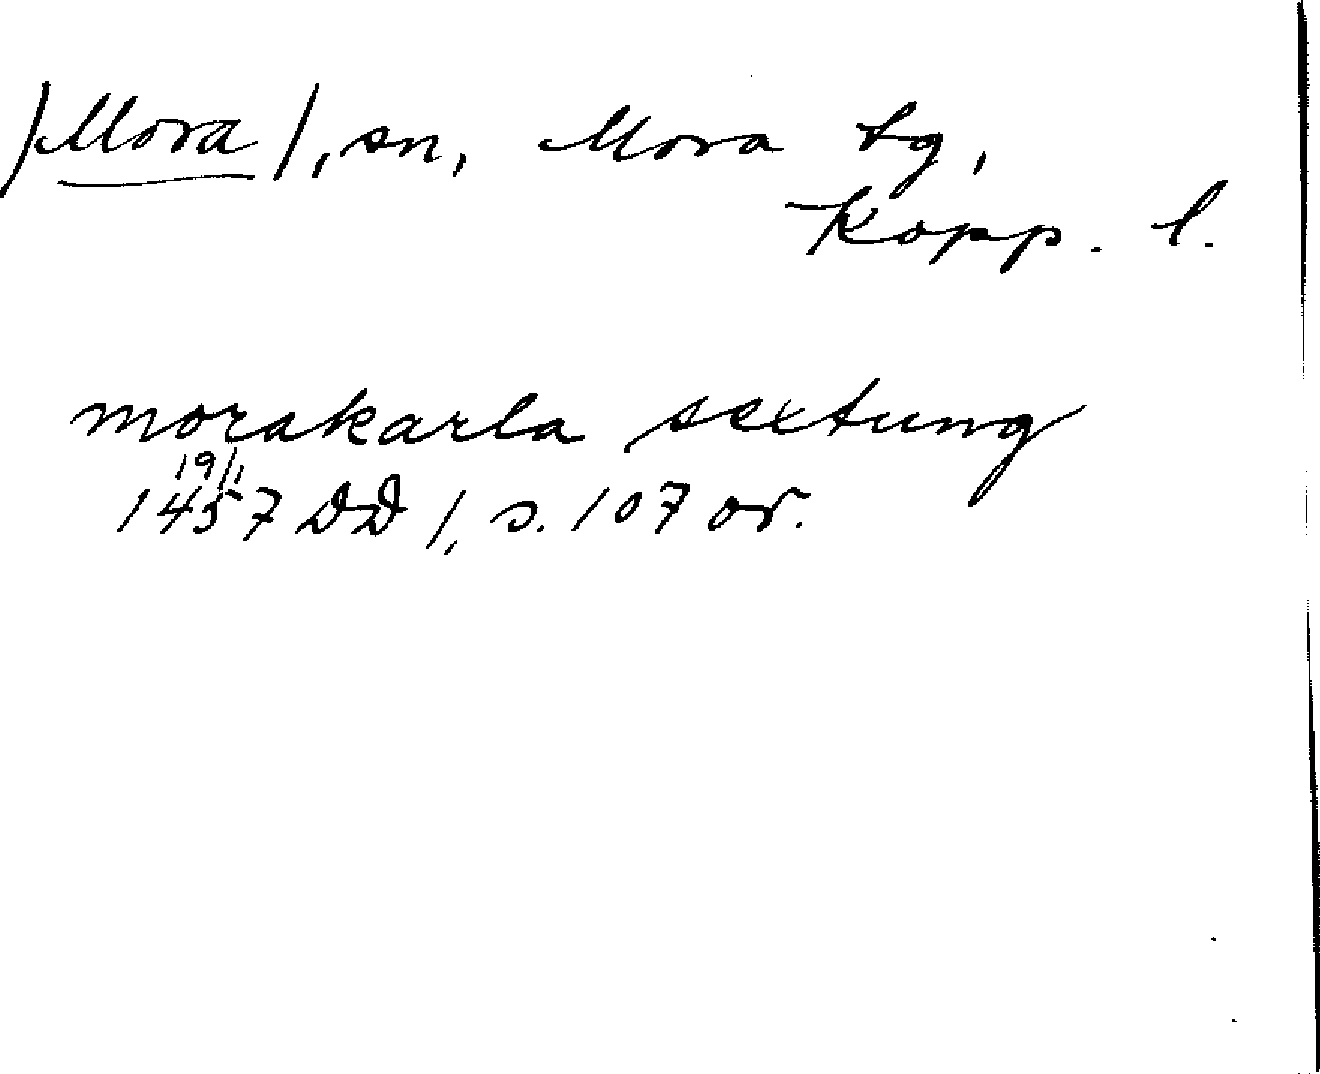 /Mora/, sn, Mora tg,
Kopp. l.
morakarla sextung
19/1
1457 DD 1, s. 107 or.